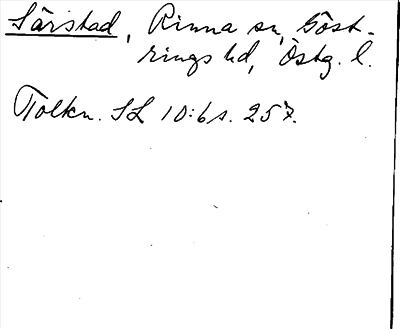 Särstad, Rinna sn, Göst-
rings hd, Östg. l.
Tolkn. SL 10:6 s. 257.